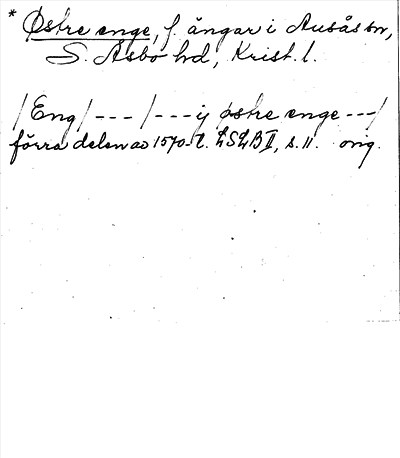 * Østre enge, f. ängar i Ausås sn,
S. Åsbo hd, Krist. l.
/Eng/ --- / --- ij østre enge --- /
förra delen av 1570-t. LSLB II, s. 11. orig.